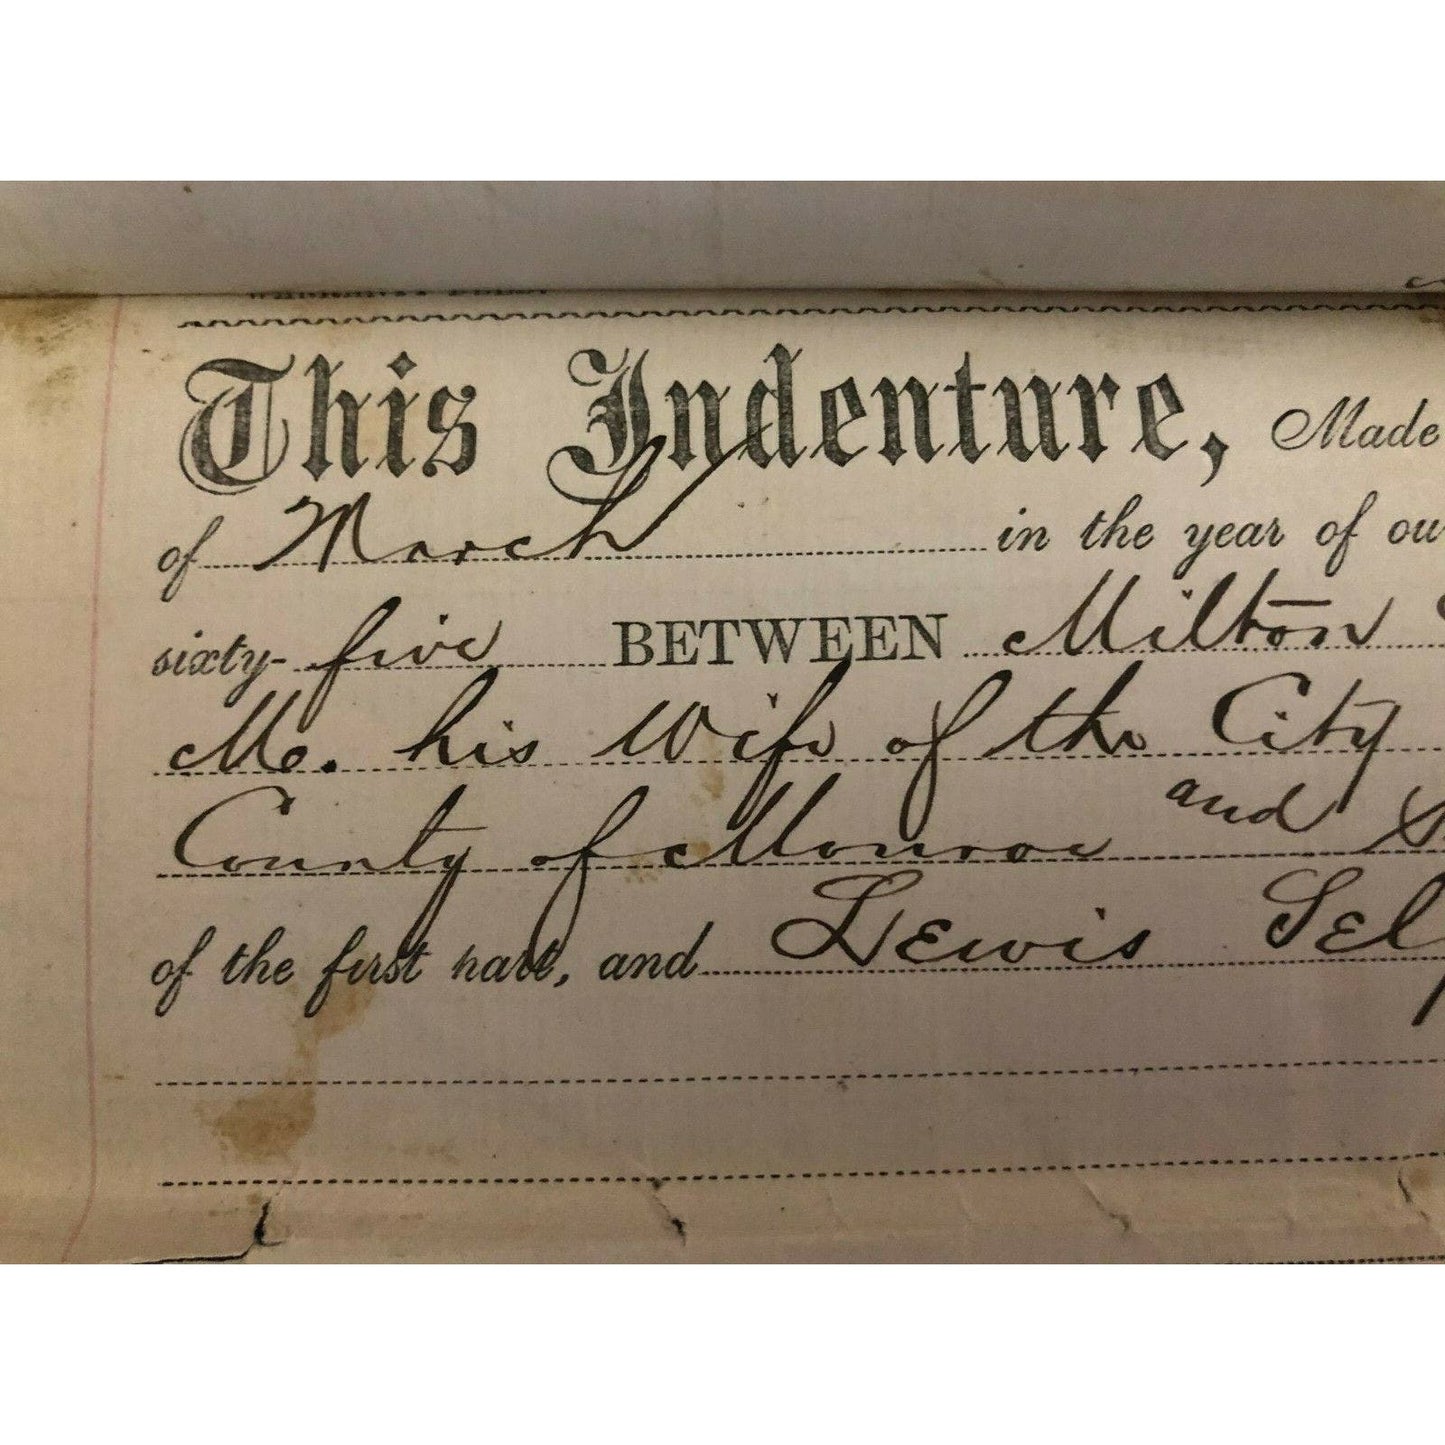 This Indenture, Made
of March in the year of ou
sixty-five BETWEEN Milton
M. his Wife of the City
County of Monroe and
of the first part, and Lewis Sel